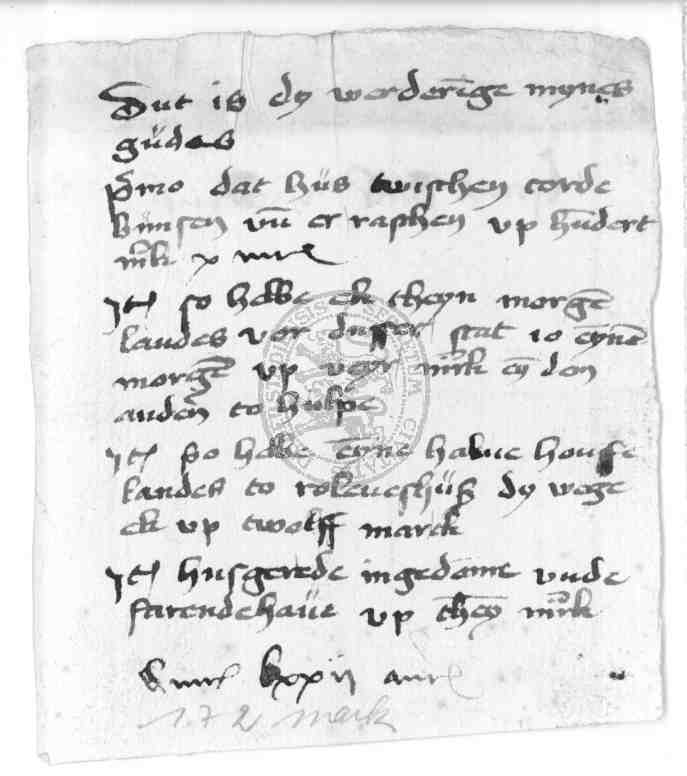 Dut is dy werderīge mynes
gůdes
p̄mo dat hůs twischen corde
bůnsen vn̄ er raschen up hūdert
m̄rk
Itͫ so hebbe ek theyn morgē
landes vor dusser stat io eynē
morgē up veyr m̄rk eȳ den
anderen to hulpe
Itͫ so hebbe eyne halue houffe
landes to roleueshůß dy wege
ek up twolff marck
Itͫ husgerede ingedome vnde
farendehaůe up theȳ m̄rk
lxxij
172 mark